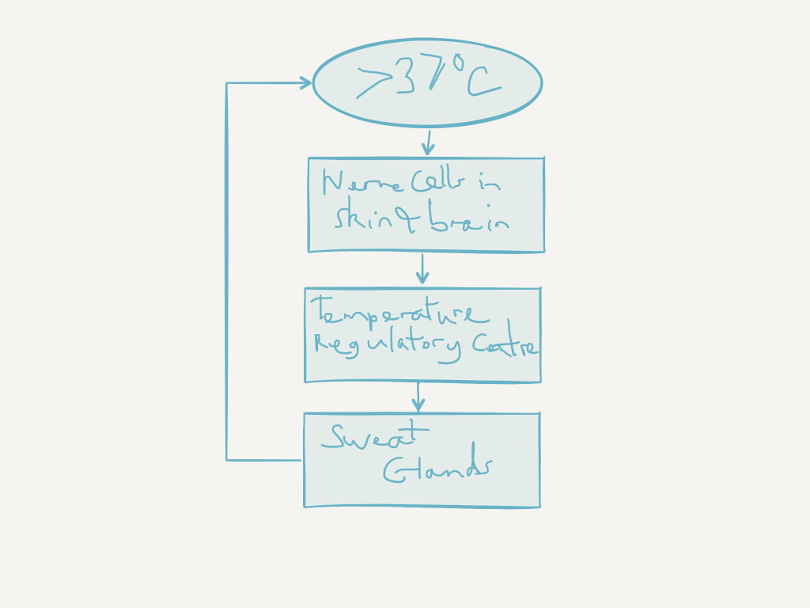 >37°C
Nerve Cells in
skin & brain
Temperature
Regulatory Centre
Sweat
Glands